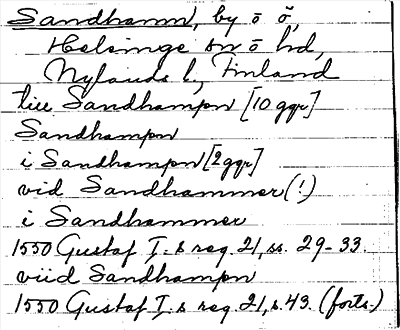 Sandhamn, by o ö,
Helsinge sn o hd,
Nylands l., Finland
till Sandhampn [10 ggr]
Sandhampn
i Sandhampn [2 ggr]
vid Sandhammer (!)
i Sandhammer
1550 Gustaf I:s reg. 21, ss. 29-33.
viid Sandhampn
1550 Gustaf I:s reg. 21, s. 43. (forts.)